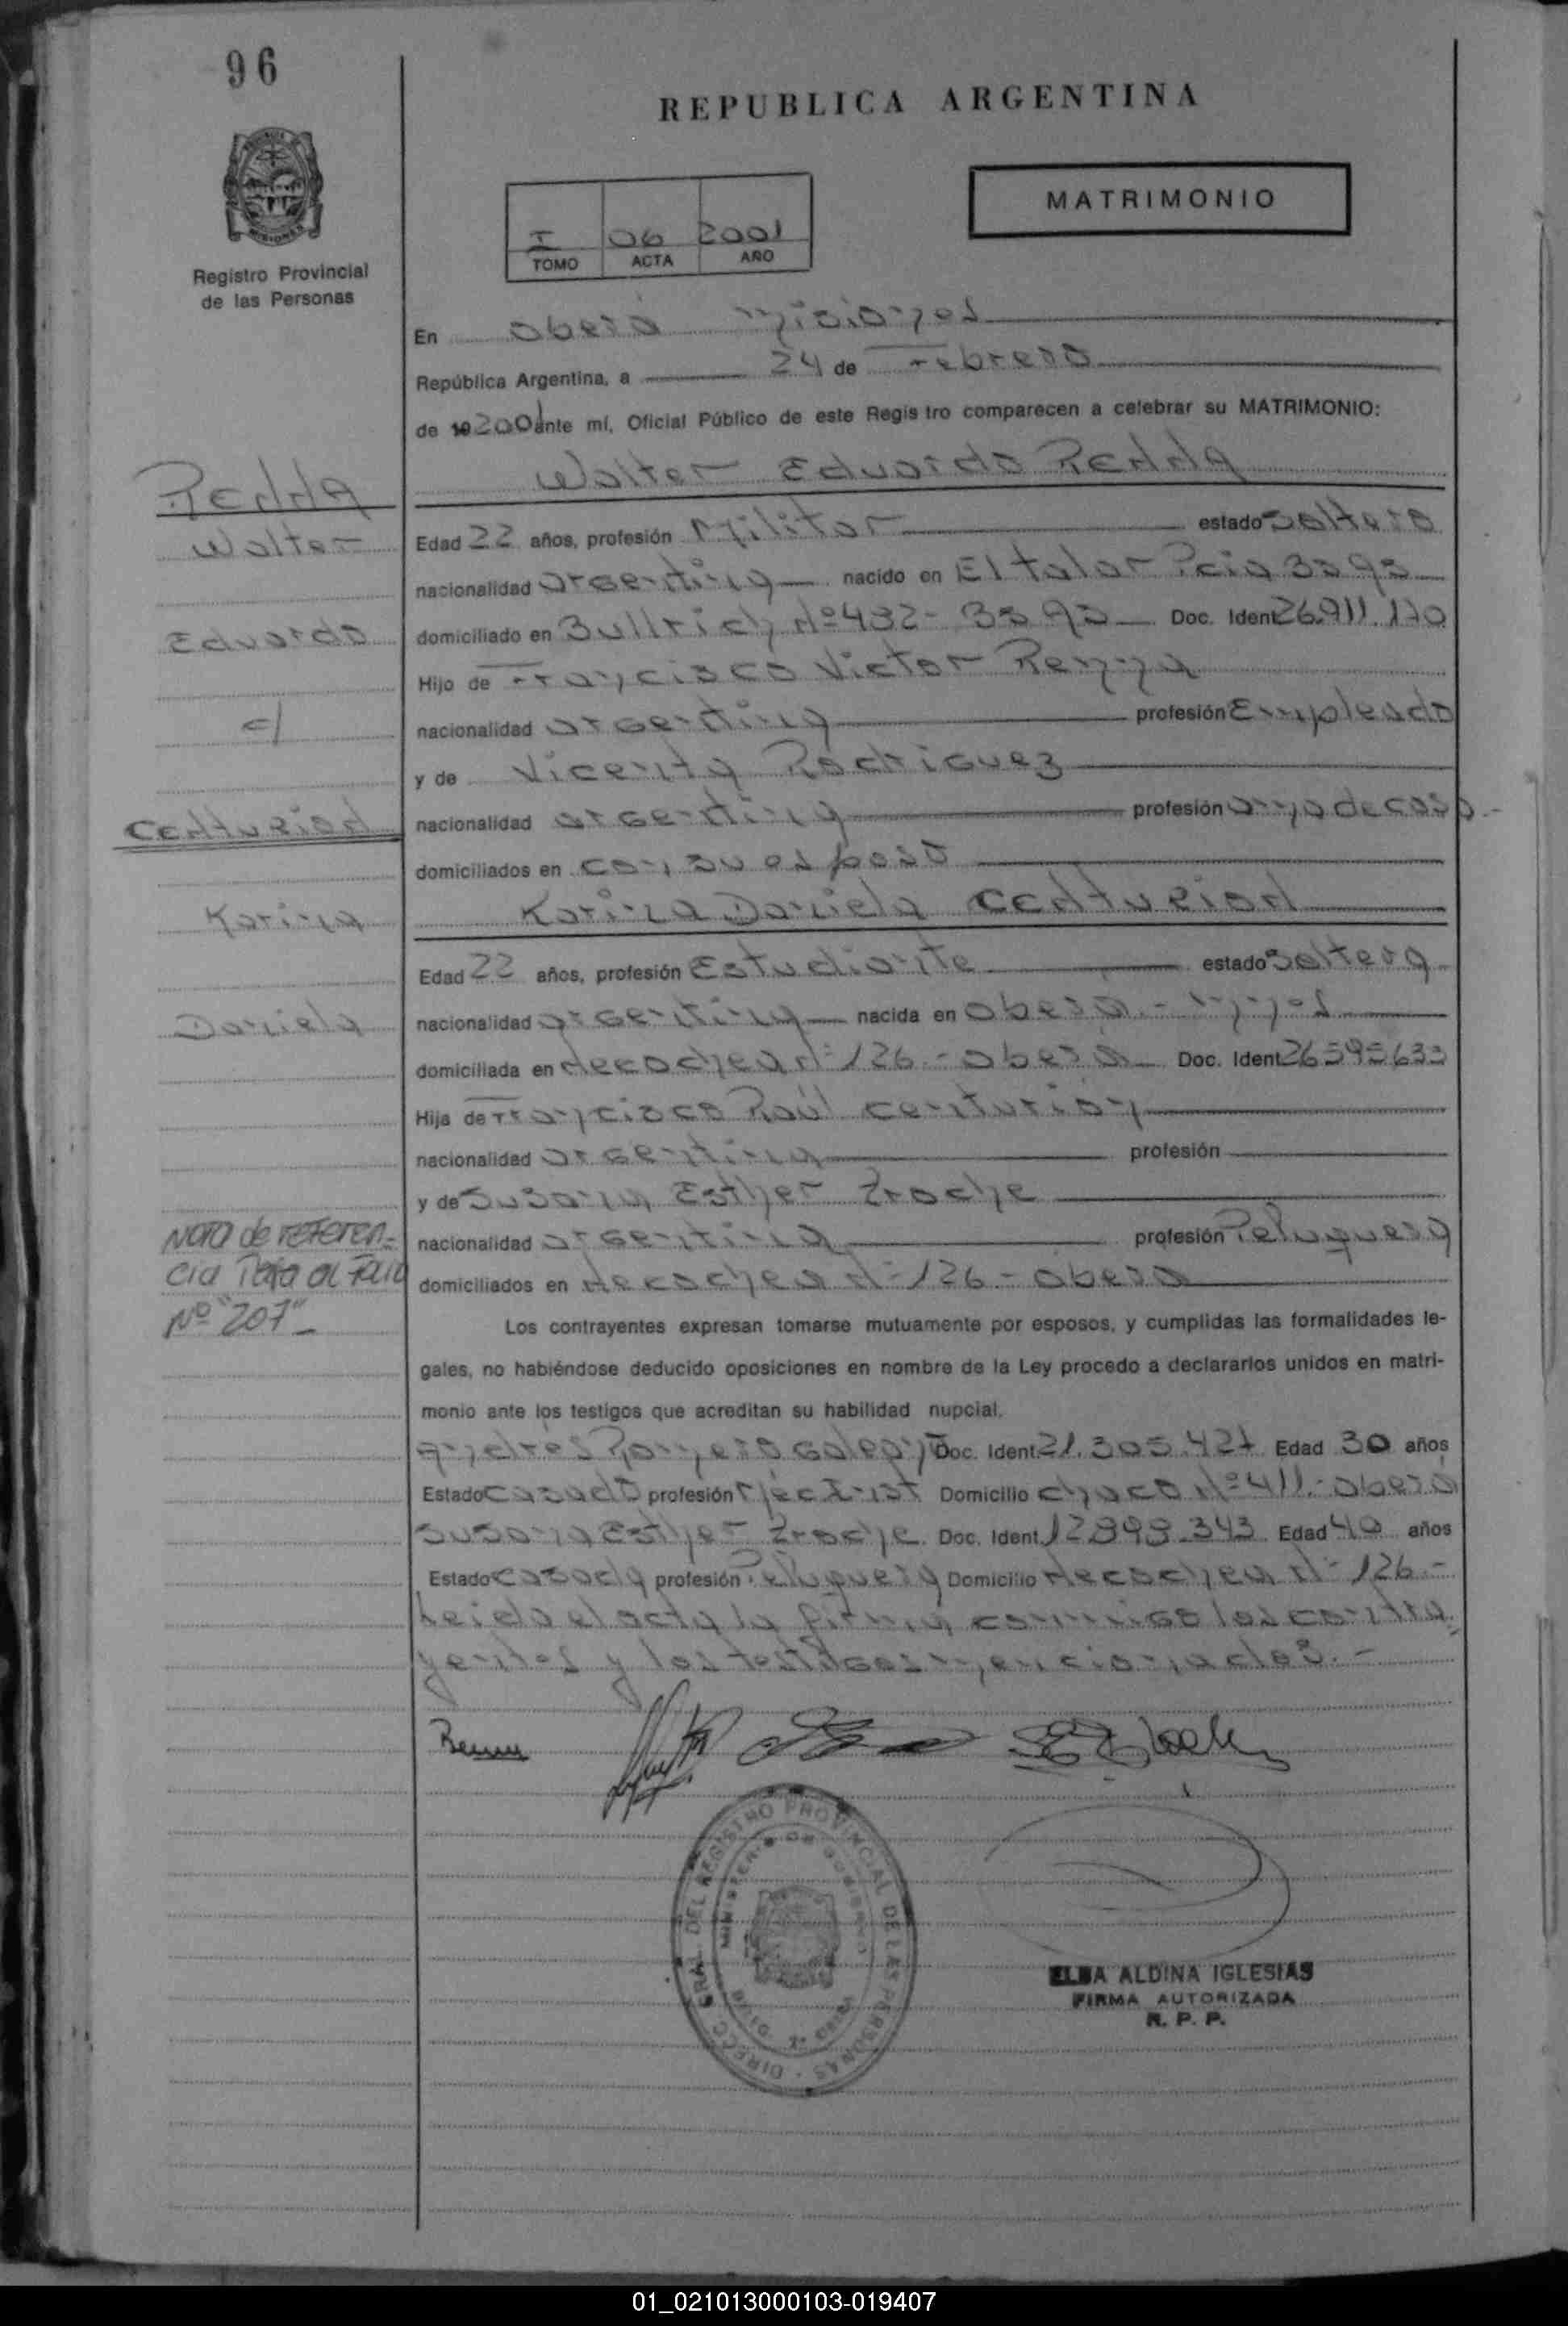 96
REPUBLICA ARGENTINA
MISIONES
Registro Provincial
de las Personas
MATRIMONIO
I 06 2001
TOMO ACTA AÑO
En Oberá Misiones
República Argentina, a 24 de Febrero
de 19 2001 ante mí, Oficial Público de este Registro comparecen a celebrar su MATRIMONIO:
Walter Eduardo RENNA
RENNA
Walter
Eduardo
c/
CENTURION
Karina
Daniela
Edad 22 años, profesión Militar estado soltero
nacionalidad argentina nacido en El talar Pcia Bs As
domiciliado en Bullrich Nº 432- Bs As Doc. Ident 26.911.170
Hijo de Francisco Victor Renna
nacionalidad argentina profesión Empleado
y de Vicenta Rodriguez
nacionalidad argentina profesión ama de casa.-
domiciliados en con su esposo
Karina Daniela CENTURION
Edad 22 años, profesión Estudiante estado soltera
nacionalidad argentina nacida en Oberá.- Mnes
domiciliada en Necochea Nº 126.- Oberá Doc. Ident 26595633
Hija de Francisco Raúl Centurión
nacionalidad argentina profesión
y de Susana Esther
nacionalidad argentina profesión Peluquera
domiciliados en Necochea Nº 126 - Oberá
Nota de referen-
cia Pasa al Folio
Nº "207"-
Los contrayentes expresan tomarse mutuamente por esposos, y cumplidas las formalidades le-
gales, no habiéndose deducido oposiciones en nombre de la Ley procedo a declararlos unidos en matri-
monio ante los testigos que acreditan su habilidad nupcial.
Andrés Doc. Ident. 21.305.427 Edad 30 años
Estado casado profesión Domicilio Chaco Nº 411.- Oberá
Susana Esther Doc. Ident. 12.899.343 Edad 40 años
Estado casada profesión Peluquera Domicilio Necochea Nº 126.-
Leida el acta la firman conmigo los contra-
yentes y los testigos mencionados.-
DIRECC. GRAL. DEL REGISTRO PROVINCIAL DE LAS PERSONAS
MINISTERIO DE GOBIERNO
ELBA ALDINA IGLESIAS
FIRMA AUTORIZADA
R. P. P.
01_021013000103-019407